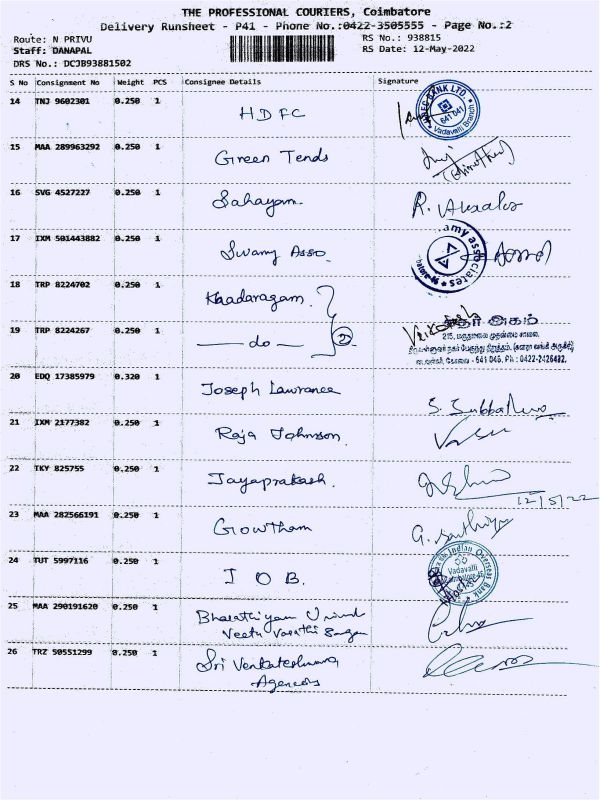 THE PROFESSIONAL COURIERS, Coimbatore
Delivery Runsheet - P41 - Phone No.:0422-3505555 - Page No.:2
Route: N PRIVU
RS No.: 938815
Staff: DANAPAL
RS Date: 12-May-2022
DRS No.: DCJB93881502
S No Consignment No Weight PCS Consignee Details Signature
14 TNJ 9602301 0.250 1 HDFC
HDFC BANK LTD. 641 041 Vadavalli Branch
15 MAA 289963292 0.250 1 Green Tends
16 SVG 4527227 0.250 1 Sahayam. R.
17 IXM 501443882 0.250 1 Swamy Asso.
amy associates
18 TRP 8224702 0.250 1 Kaadaragam
19 TRP 8224267 0.250 1 — do — 2
215, மருதமலை முதன்மை சாலை,
கோவை - 641 046. Ph : 0422-2426482.
20 EDQ 17385979 0.320 1 Joseph Lawrance
S.
21 IXM 2177382 0.250 1 Raja Johnson.
22 TKY 825755 0.250 1 Jayaprakash.
12/5/22
23 MAA 282566191 0.250 1 Gowtham
G.
24 TUT 5997116 0.250 1 I O B.
Indian Overseas Bank Vadavalli
25 MAA 290191620 0.250 1 Bharathiyar
Veetu
26 TRZ 50551299 0.250 1 Sri Venkateshwara
Agencies